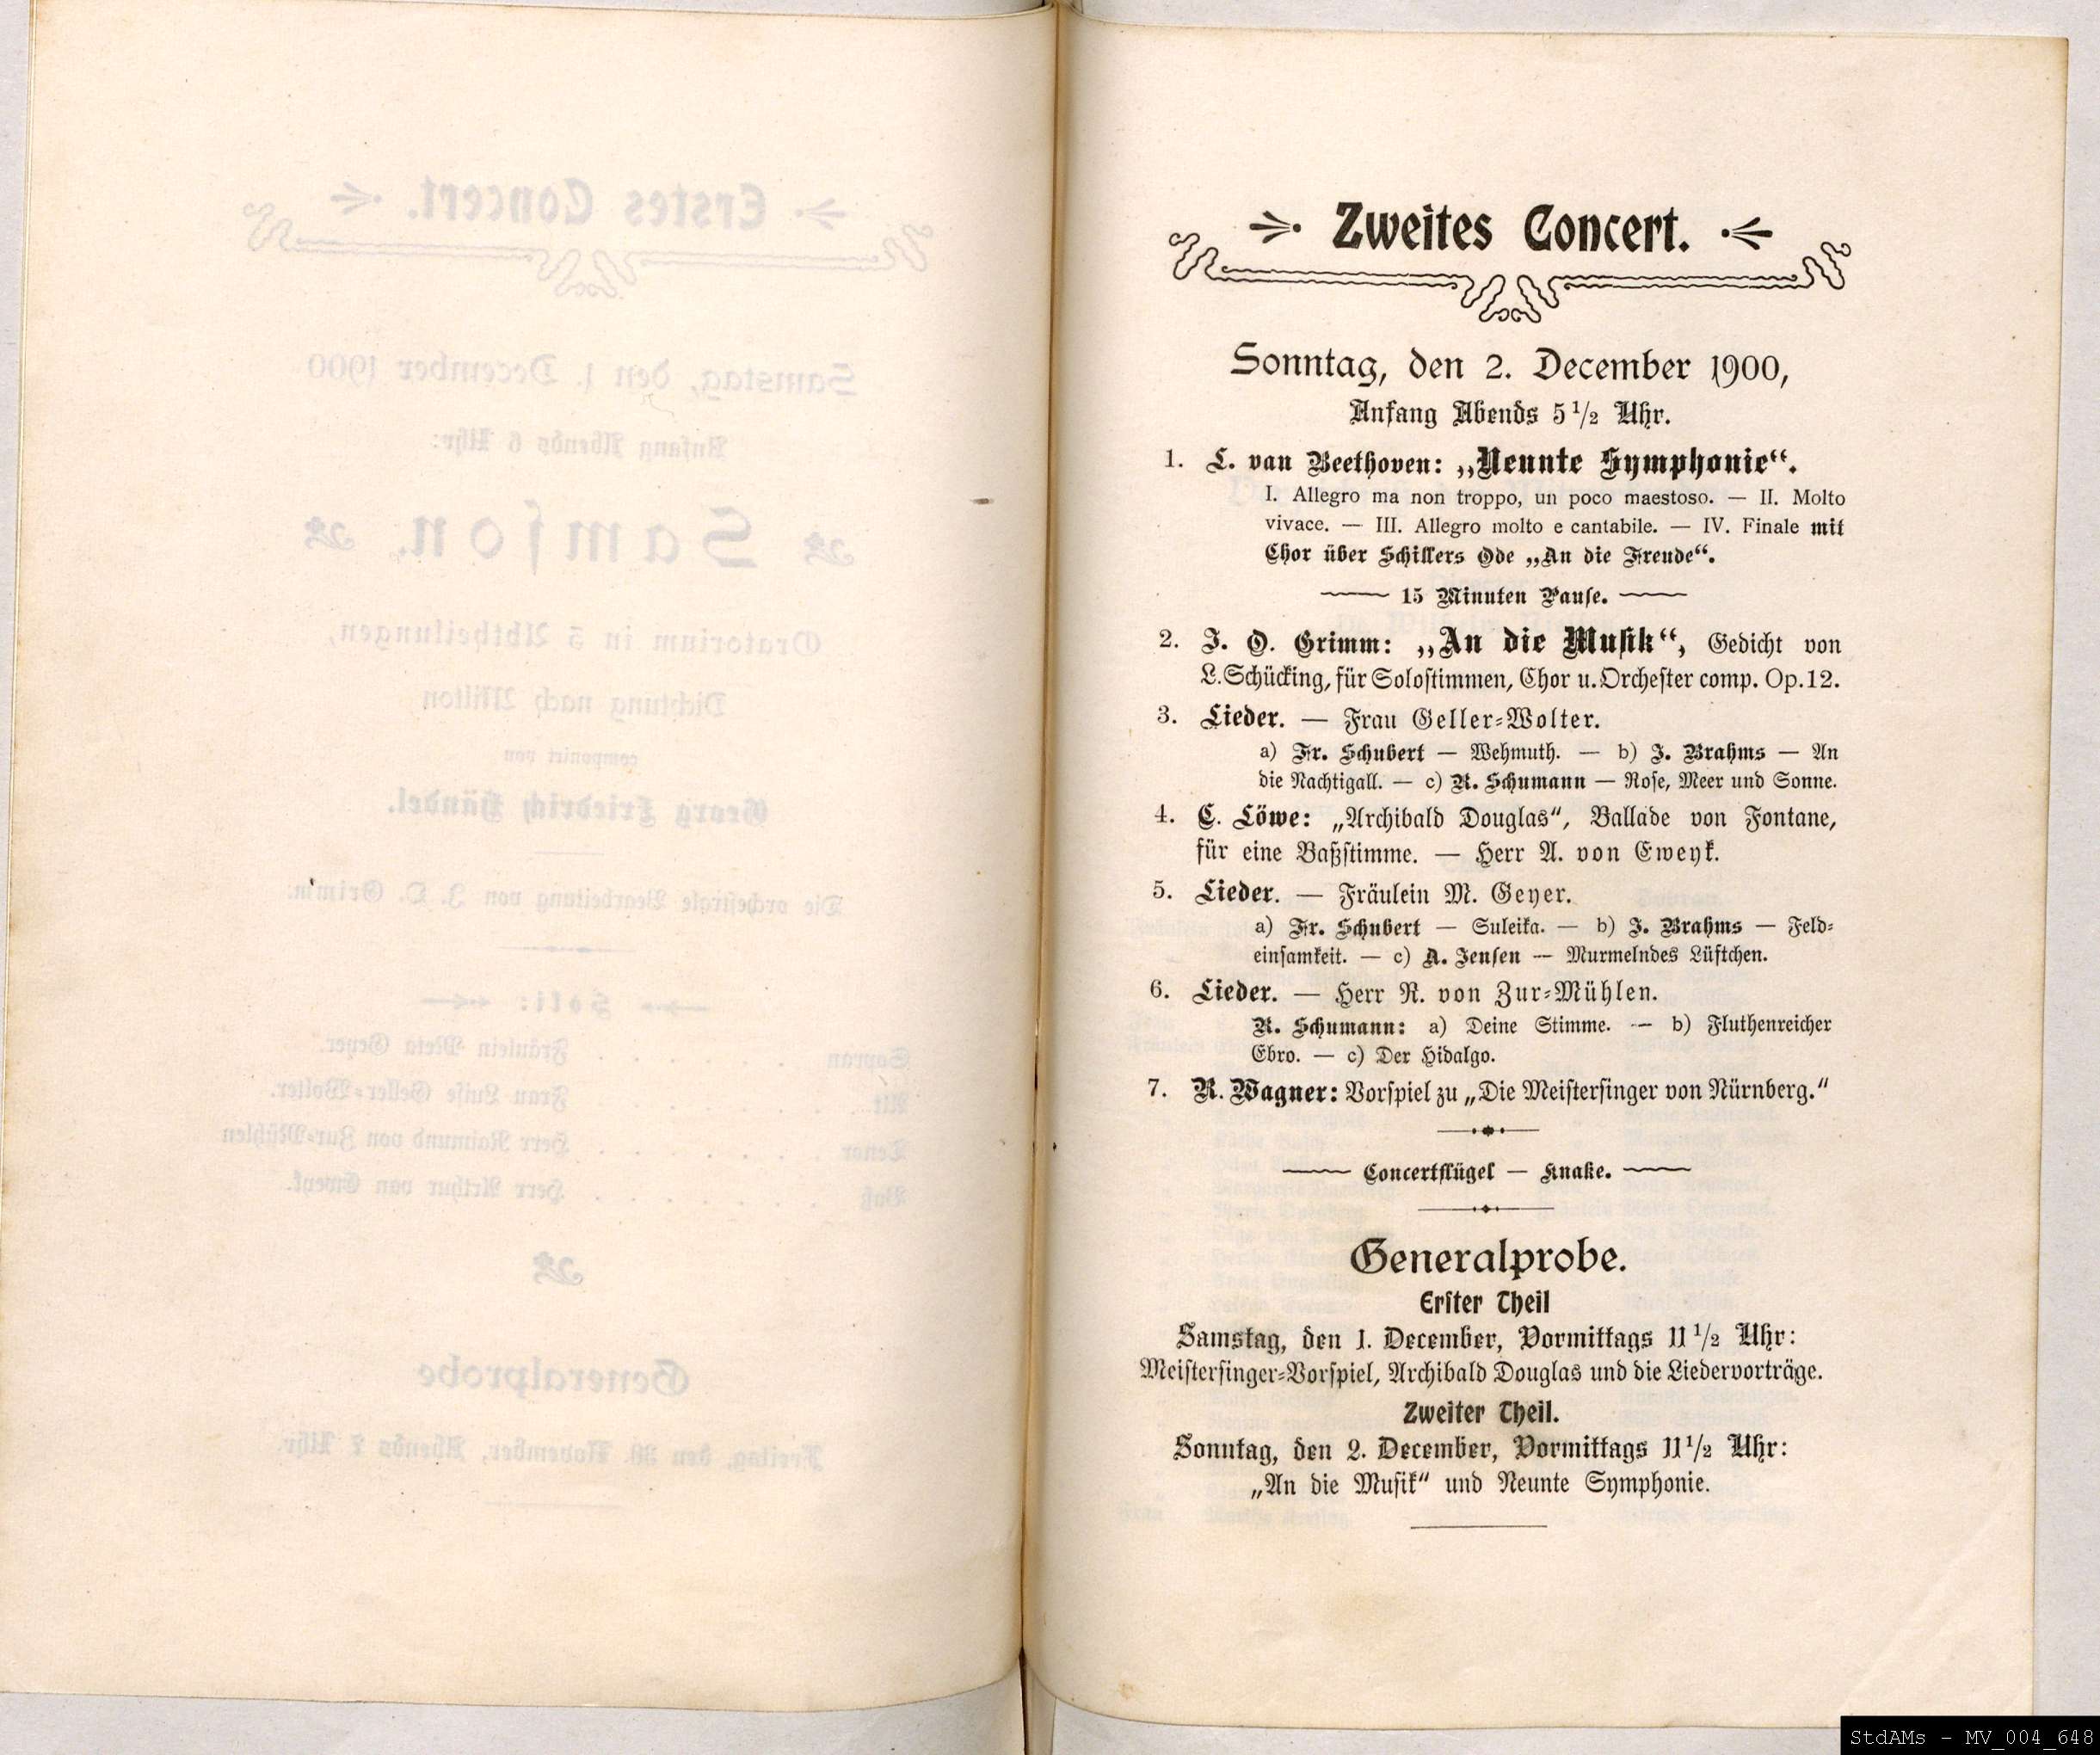 Zweites Concert.
Sonntag, den 2. December 1900,
Anfang Abends 5 1/2 Uhr.
1. L. van Beethoven: „Neunte Symphonie“.
I. Allegro ma non troppo, un poco maestoso. — II. Molto
vivace. — III. Allegro molto e cantabile. — IV. Finale mit
Chor über Schillers Ode „An die Freude“.
15 Minuten Pause.
2. J. O. Grimm: „An die Musik“, Gedicht von
L. Schücking, für Solostimmen, Chor u. Orchester comp. Op. 12.
3. Lieder. — Frau Geller-Wolter.
a) Fr. Schubert — Wehmuth. — b) J. Brahms — An
die Nachtigall. — c) R. Schumann — Rose, Meer und Sonne.
4. C. Löwe: „Archibald Douglas“, Ballade von Fontane,
für eine Baßstimme. — Herr A. von Eweyk.
5. Lieder. — Fräulein M. Geyer.
a) Fr. Schubert — Suleika. — b) J. Brahms — Feld-
einsamkeit. — c) A. Jensen — Murmelndes Lüftchen.
6. Lieder. — Herr R. von Zur-Mühlen.
R. Schumann: a) Deine Stimme. — b) Fluthenreicher
Ebro. — c) Der Hidalgo.
7. R. Wagner: Vorspiel zu „Die Meistersinger von Nürnberg.“
Concertflügel — Knake.
Generalprobe.
Erster Theil
Samstag, den 1. December, Vormittags 11 1/2 Uhr:
Meistersinger-Vorspiel, Archibald Douglas und die Liedervorträge.
Zweiter Theil.
Sonntag, den 2. December, Vormittags 11 1/2 Uhr:
„An die Musik“ und Neunte Symphonie.
StdAMs - MV_004_648